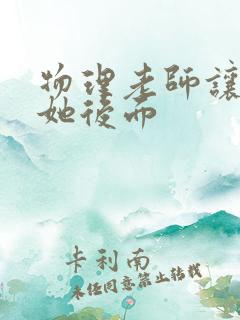 物理老师讓
她後而
卡利南
未经同意禁止转载